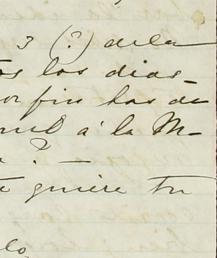 3 (?) de la
os los dias
or fin has de
á la M-
? . —
te quiere tu
lo,